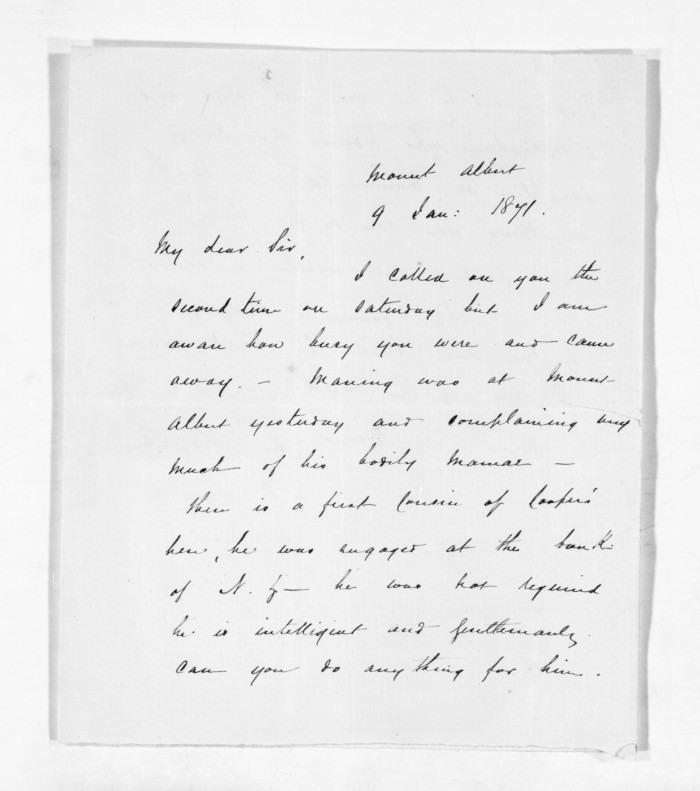 Mount Albert
9 Jan: 1871.
My dear Sir,
I called on you the
second time on Saturday but I am
aware how busy you were and came
away. — Maning was at Mount
Albert yesterday and complaining very
much of his bodily mamae —
There is a first Cousin of Cooper's
here, he was engaged at the bank
of N. Z — he was not required
he is intelligent and gentlemanly.
can you do anything for him.